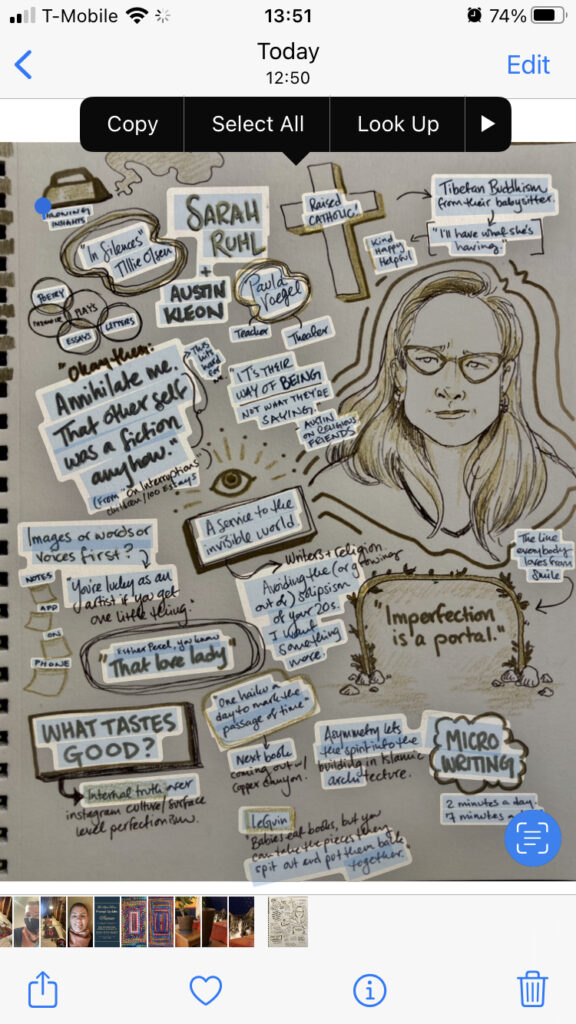 T-Mobile
13:51
74%
Today
12:50
Edit
Copy
Select All
Look Up
INSIGHTS
"In Silences"
Tillie Olsen
SARAH
RUHL
+
AUSTIN
KLEON
Paula
Vogel
Teacher
Theater
Raised
CATHOLIC!
Tibetan Buddhism
from their babysitter.
"I'll have what she's
having."
Kind
Happy
Helpful
POETRY
PLAYS
ESSAYS
LETTERS
"Okay then:
Annihilate me.
That other self
was a fiction
anyhow."
(From "On Interruptions"
children/100 Essays
This
hits
hard
for
"IT'S THEIR
WAY OF BEING
NOT WHAT THEY'RE
SAYING."
AUSTIN
ON RELIGIOUS
FRIENDS
A service to the
invisible world
Writers + Religion
Avoiding the (or growing
out of) solipsism
of your 20s.
I want
something
more.
Images or words or
voices first?
"You're lucky as an
artist if you get
one little thing.
NOTES
APP
ON
PHONE
Esther Perel, you know
"That love lady"
The line
everybody
loves from
Smile
"Imperfection
is a portal."
WHAT TASTES
GOOD?
Internal truth over
instagram culture/surface
level perfectionism.
"One haiku a
day to mark the
passage of time"
Next book
coming out w/
Copper Canyon.
Asymmetry lets
the spirit into the
building in Islamic
architecture.
MICRO
WRITING
2 minutes a day.
7 minutes a
LeGuin
"Babies eat books, but you
can take the pieces they
spit out and put them back
together.